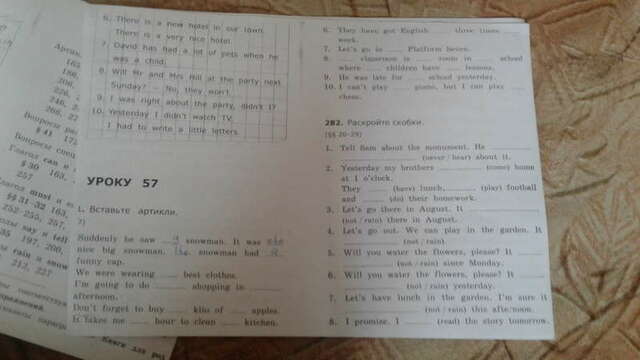 6. There is a new hotel in our town.
There is a very nice hotel
7. David has had a lot of pets when he
was a child.
8. Will Mr and Mrs Hill at the party next
Sunday? – No, they won't.
9. I was right about the party, didn't I?
10. Yesterday I didn't watch TV.
I had to write a little letters.
УРОКУ 57
1. Вставьте артикли.
7)
Suddenly he saw a snowman. It was
nice big snowman. The snowman had a
funny cap.
We were wearing ___ best clothes.
I'm going to do ___ shopping in ___
afternoon.
Don't forget to buy ___ kilo of ___ apples.
It takes me ___ hour to clean ___ kitchen.
6. They have got English ___ three times ___
week.
7. Let's go to ___ Platform Seven.
8. ___ classroom is ___ room in ___ school
where ___ children have ___ lessons.
9. He was late for ___ school yesterday.
10. I can't play ___ piano, but I can play ___
chess.
282. Раскройте скобки.
[§§ 20–29]
1. Tell Sam about the monument. He ___
___ (never / hear) about it.
2. Yesterday my brothers ___ (come) home
at 1 o'clock.
They ___ (have) lunch, ___ (play) football
and ___ (do) their homework.
3. Let's go there in August. It ___
(not / rain) there in August.
4. Let's go out. We can play in the garden. It
___ (not / rain).
5. Will you water the flowers, please? It ___
___ (not / rain) since Monday.
6. Will you water the flowers, please? It ___
___ (not / rain) yesterday.
7. Let's have lunch in the garden. I'm sure it
___ (not / rain) this afternoon.
8. I promise, I ___ (read) the story tomorrow.